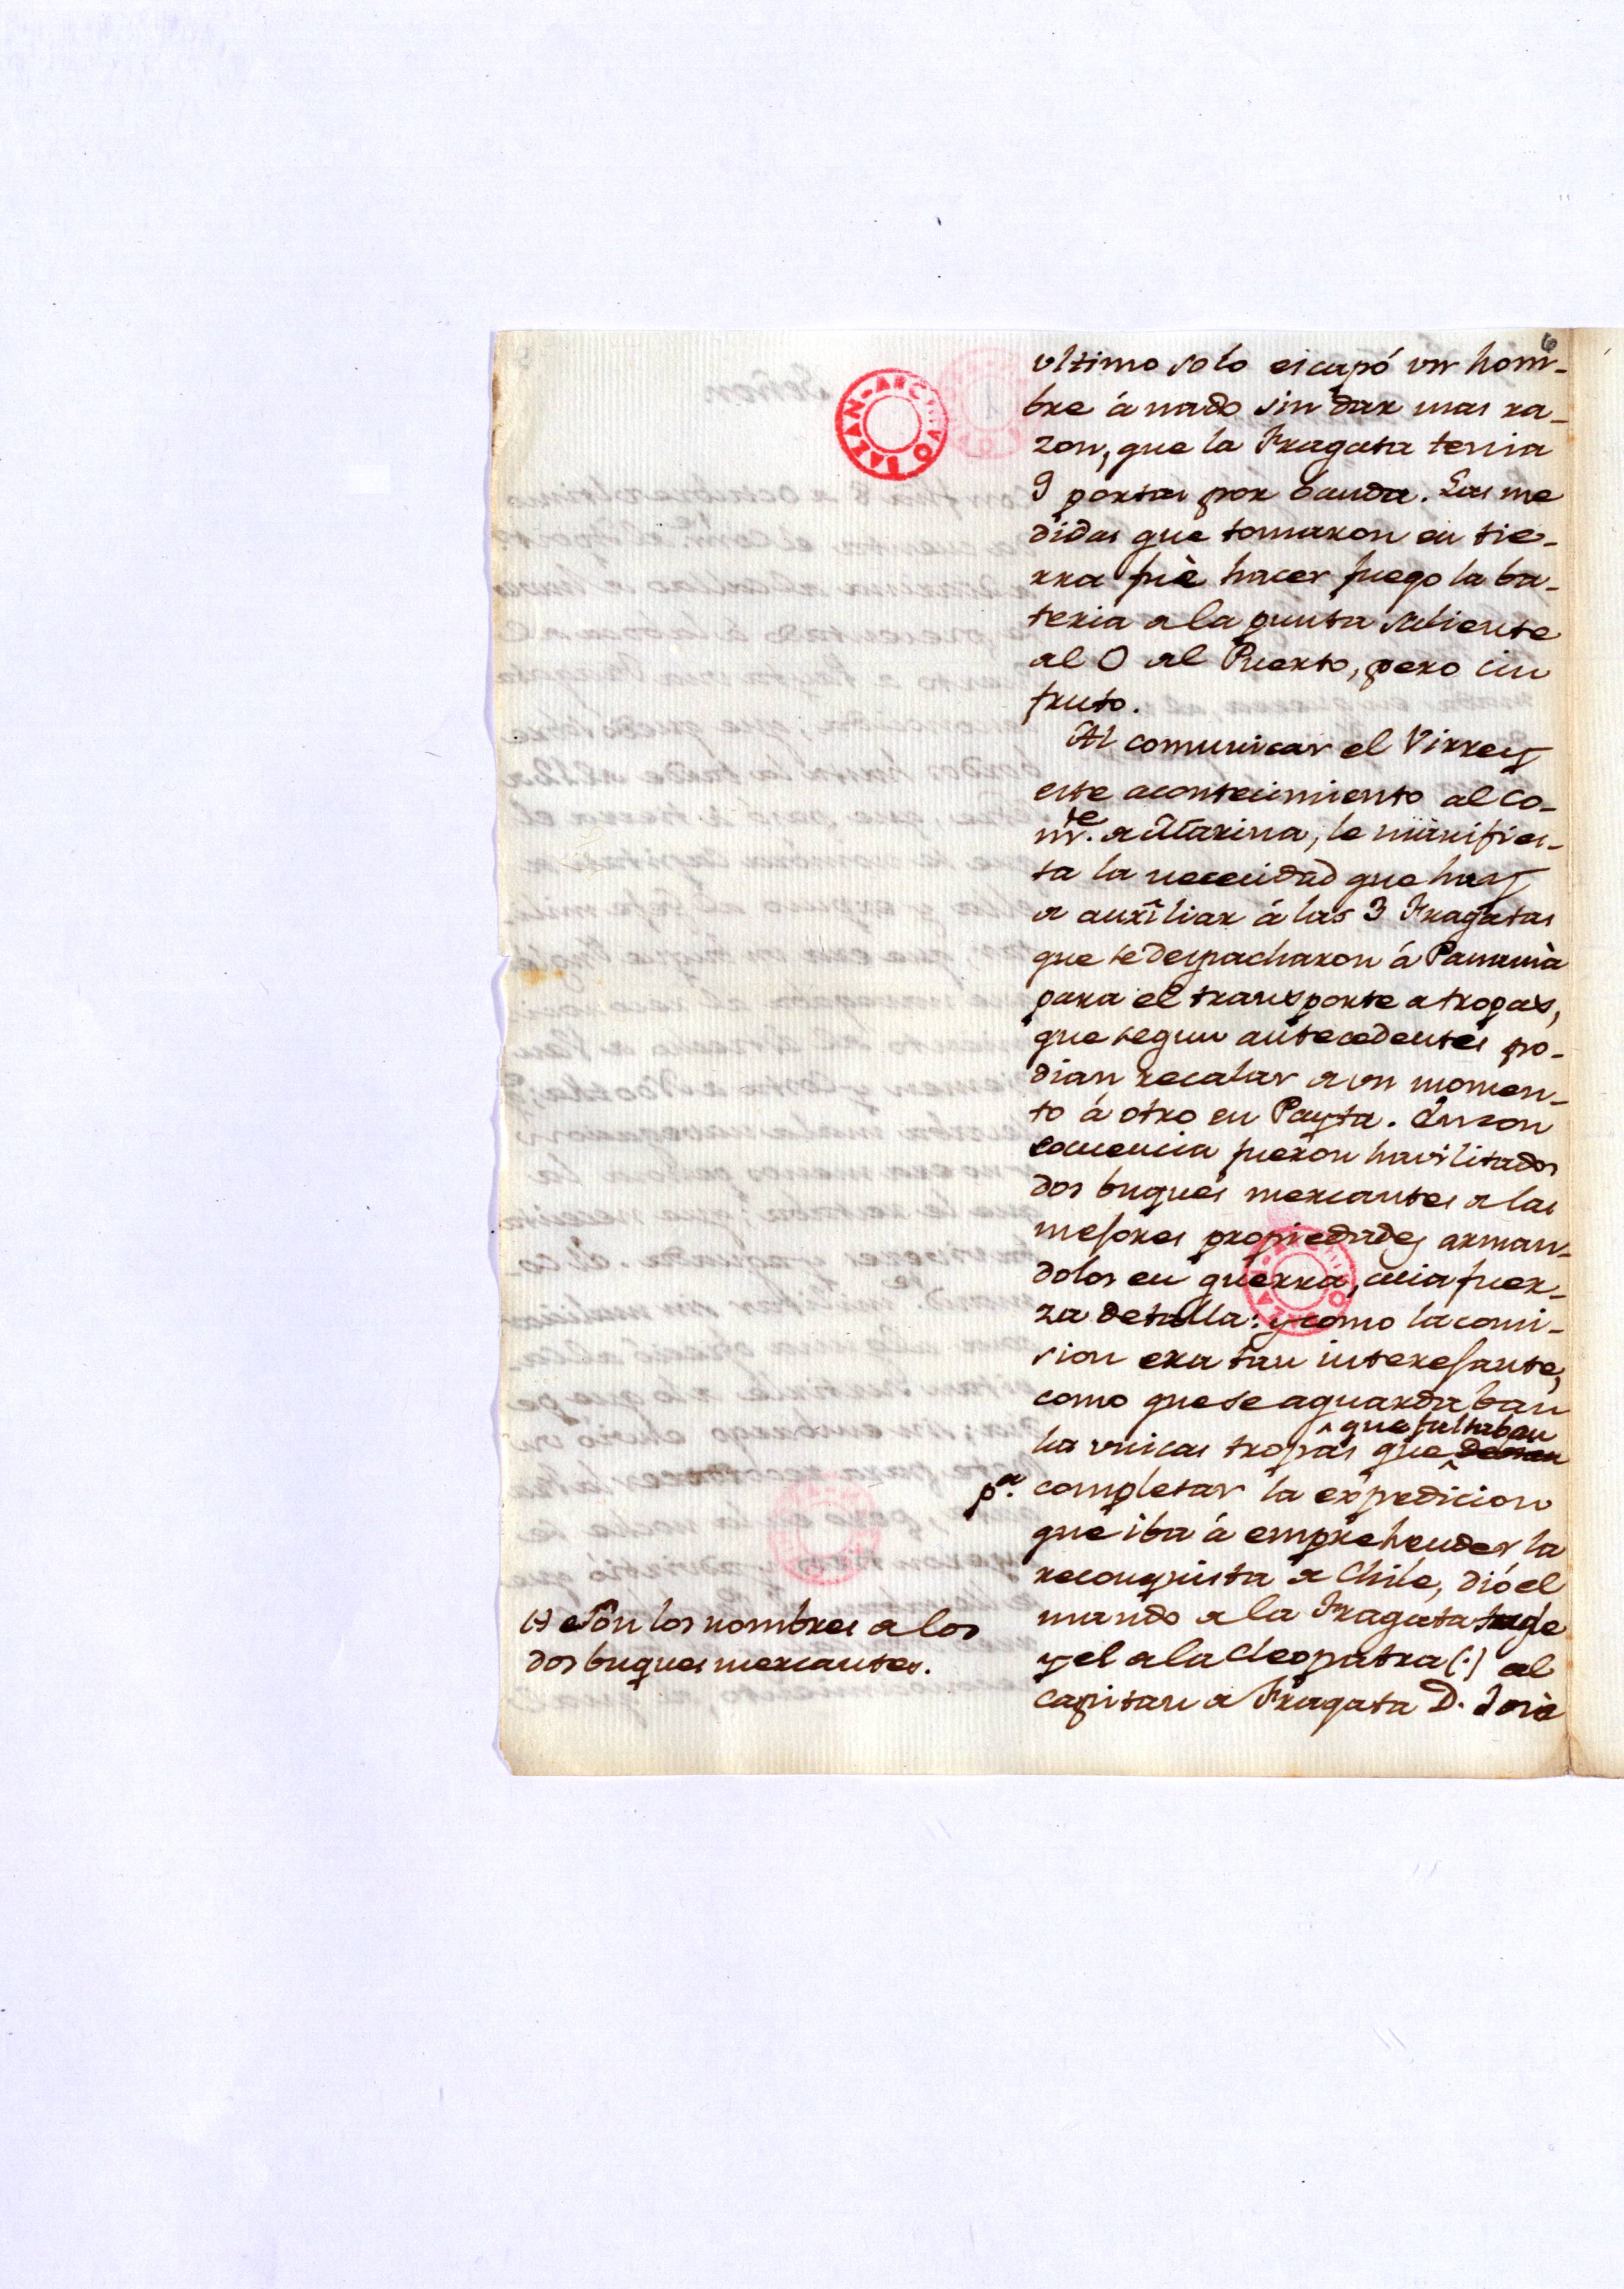 6
ultimo solo escapó un hom-
bre á nado sin dar mas ra-
zon, que la Fragata tenia
9 portas por banda. Las me
didas que tomaron en tie-
rra fuè hacer fuego la ba-
teria a la punta saliente
al O al Puerto, pero sin
fruto.
Al comunicar el Virrey
este acontecimiento al Co-
m.te a Marina, le manifies-
ta la necesidad que hay
a auxîliar á las 3 Fragatas
que se despacharon á Panamà
para el transporte a tropas,
que segun antecedentes po-
dian recalar a un momen-
to á otro en Payta. En con
secuencia fueron havilitados
dos buques mercantes a las
mejores propiedades arman-
dolos en guerra, cuia fuer-
za detalla: y como la comi-
sion era tan interesante,
como que se aguardaban
que faltaban
las unicas tropas que
p.a completar la expedicion
que iba á emprehender la
reconquista a Chile, dió el
mando a la Fragata
y el a la Cleopatra (.) al
Capitan a Fragata D. José
(.) Son los nombres a los
dos buques mercantes.
ARCHIVO BAZAN